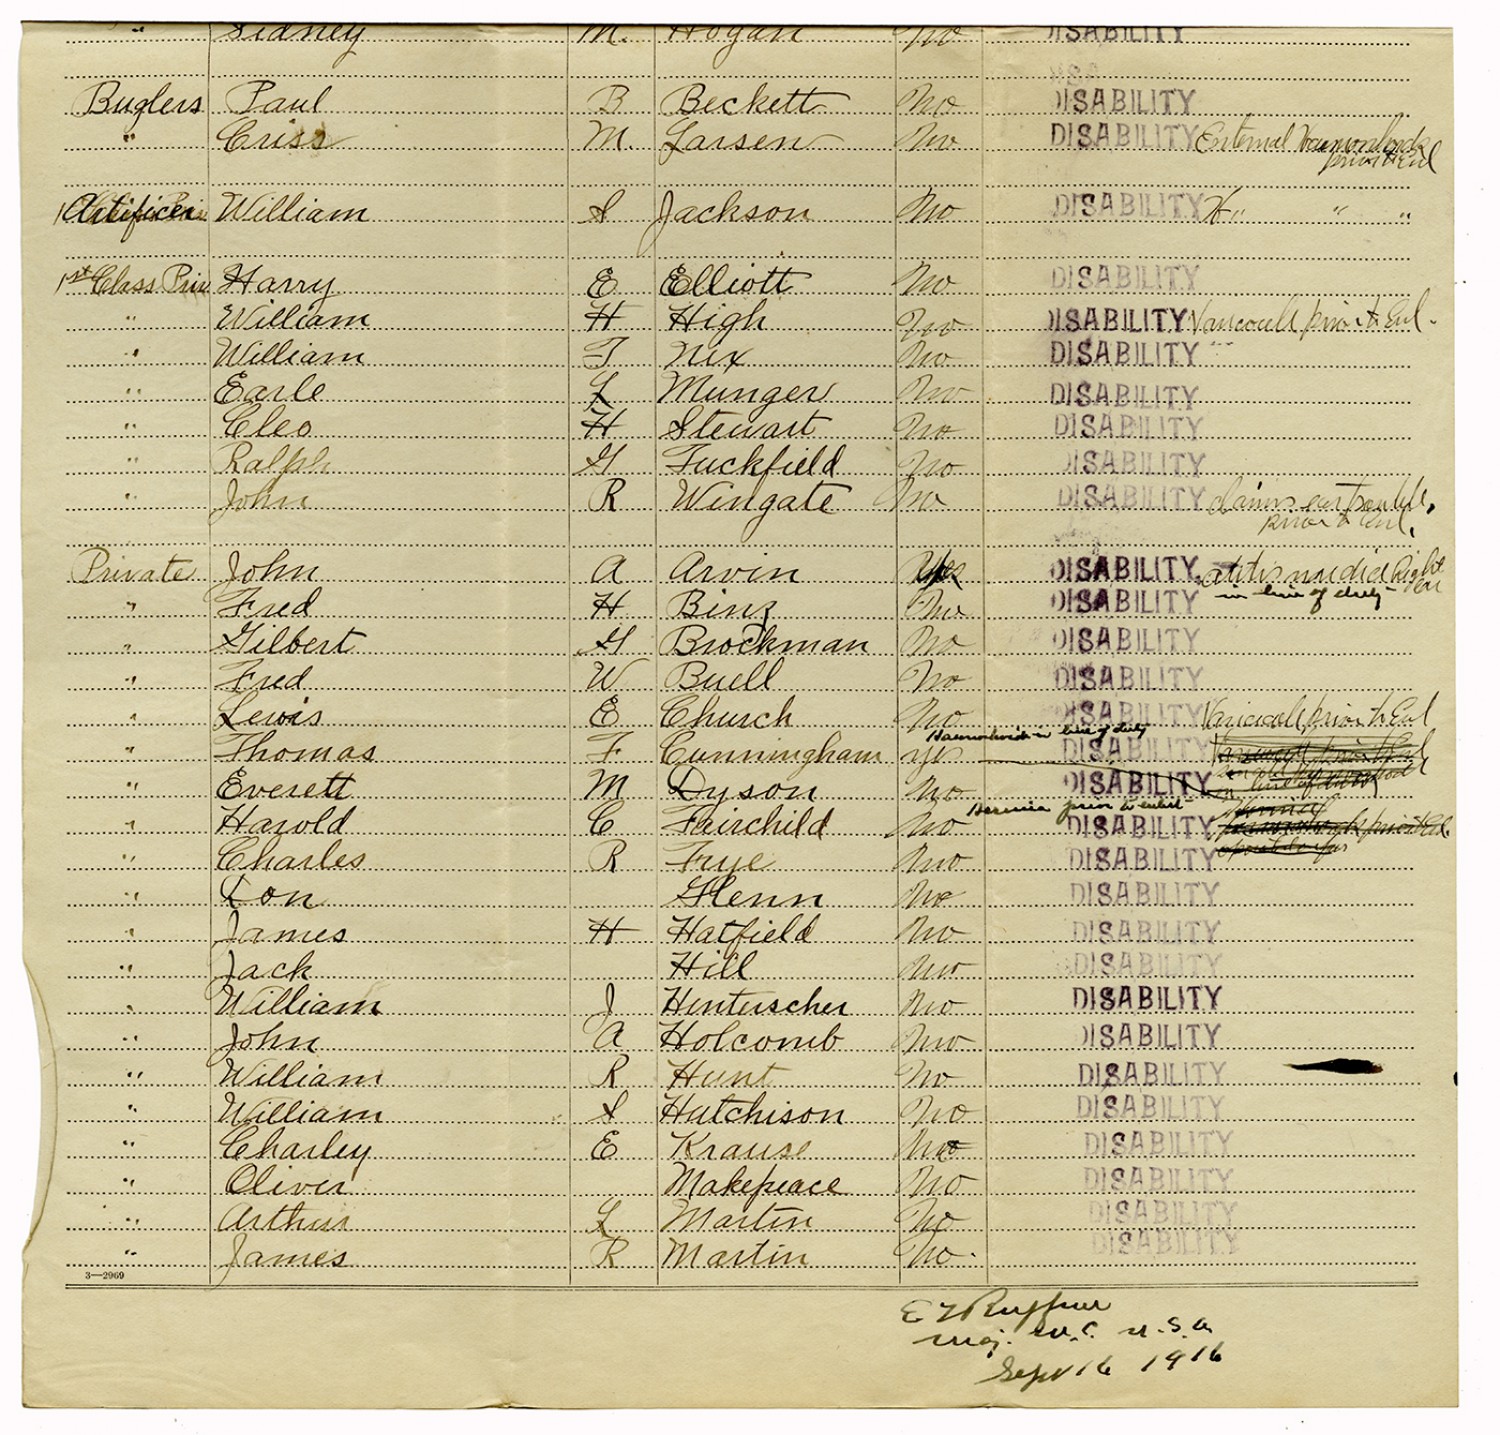 " Sidney M. Hogan No DISABILITY
Buglers Paul B Beckett No DISABILITY
" Criss M. Larsen No DISABILITY External Haemorrhoids
prior to Enl
Artificer William S Jackson No DISABILITY " " "
1st Class Priv Harry E Elliott No DISABILITY
" William H High No DISABILITY Varicocele prior to Enl.
" William T Nix No DISABILITY " "
" Earle L Munger No DISABILITY
" Cleo H Stewart No DISABILITY
" Ralph G Tuckfield No DISABILITY
" John R Wingate No DISABILITY claims ear trouble,
prior to Enl.
Private John A Arvin Yes DISABILITY otitis media Right
ear
in line of duty
" Fred H Binz No DISABILITY
" Gilbert G Brockman No DISABILITY
" Fred W Buell No DISABILITY
" Lewis E Church No DISABILITY Varicocele prior to Enl
Haemorrhoids in line of duty
" Thomas F Cunningham yes
" Everett M Dyson No DISABILITY
Hernia prior to enlist
" Harold C Fairchild No DISABILITY
" Charles R Frye No DISABILITY
" Don Glenn No DISABILITY
" James H Hatfield No DISABILITY
" Jack Hill No DISABILITY
" William J Hinterscher No DISABILITY
" John A Holcomb No DISABILITY
" William R Hunt No DISABILITY
" William S Hutchison No DISABILITY
" Charley E Krause No DISABILITY
" Oliver Makepeace No DISABILITY
" Arthur L Martin No DISABILITY
" James R Martin No. DISABILITY
3—2969
E L Ruffner
Maj. M.C. U.S.A.
Sept 16 1916